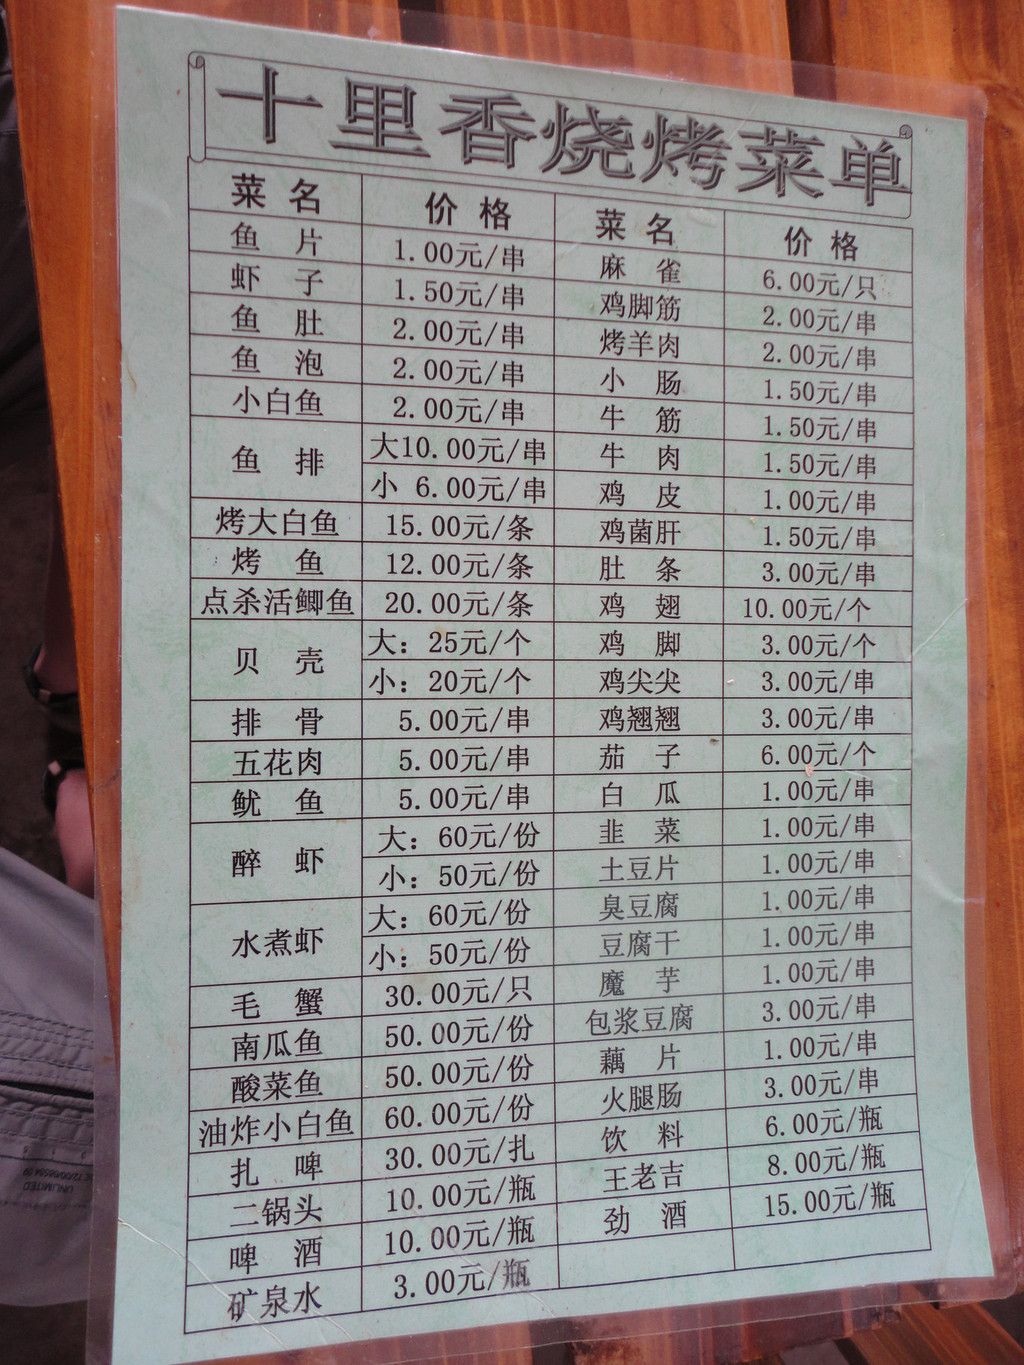 十里香烧烤菜单
菜名 价格 菜名 价格
鱼片 1.00元/串 麻雀 6.00元/只
虾子 1.50元/串 鸡脚筋 2.00元/串
鱼肚 2.00元/串 烤羊肉 2.00元/串
鱼泡 2.00元/串 小肠 1.50元/串
小白鱼 2.00元/串 牛筋 1.50元/串
鱼排 大10.00元/串 牛肉 1.50元/串
小 6.00元/串 鸡皮 1.00元/串
烤大白鱼 15.00元/条 鸡菌肝 1.50元/串
烤鱼 12.00元/条 肚条 3.00元/串
点杀活鲫鱼 20.00元/条 鸡翅 10.00元/个
贝壳 大：25元/个 鸡脚 3.00元/个
小：20元/个 鸡尖尖 3.00元/串
排骨 5.00元/串 鸡翘翘 3.00元/串
五花肉 5.00元/串 茄子 6.00元/个
鱿鱼 5.00元/串 白瓜 1.00元/串
醉虾 大：60元/份 韭菜 1.00元/串
小：50元/份 土豆片 1.00元/串
水煮虾 大：60元/份 臭豆腐 1.00元/串
小：50元/份 豆腐干 1.00元/串
毛蟹 30.00元/只 魔芋 1.00元/串
南瓜鱼 50.00元/份 包浆豆腐 3.00元/串
酸菜鱼 50.00元/份 藕片 1.00元/串
油炸小白鱼 60.00元/份 火腿肠 3.00元/串
扎啤 30.00元/扎 饮料 6.00元/瓶
二锅头 10.00元/瓶 王老吉 8.00元/瓶
啤酒 10.00元/瓶 劲酒 15.00元/瓶
矿泉水 3.00元/瓶
UNLIMITED